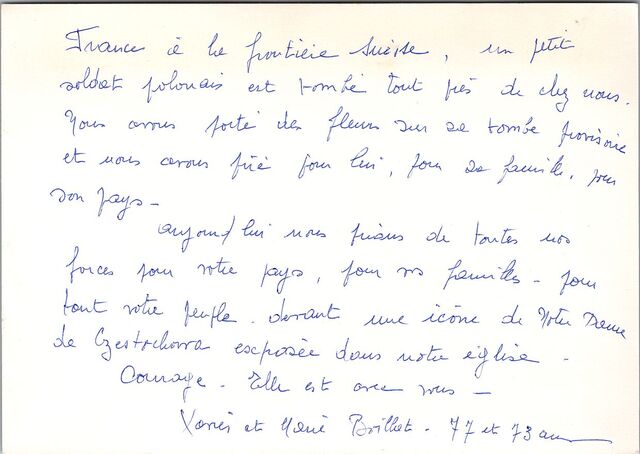 France à la frontière Suisse, un petit
soldat polonais est tombé tout près de chez nous.
Nous avons porté des fleurs sur sa tombe provisoire
et nous avons prié pour lui, pour sa famille, pour
son pays -
aujourd'hui nous prions de toutes nos
forces pour votre pays, pour vos familles - pour
tout votre peuple. devant une icône de Notre Dame
de Czestochowa exposée dans notre église -
Courage - Elle est avec vous -
et Marie - 77 et 73 ans